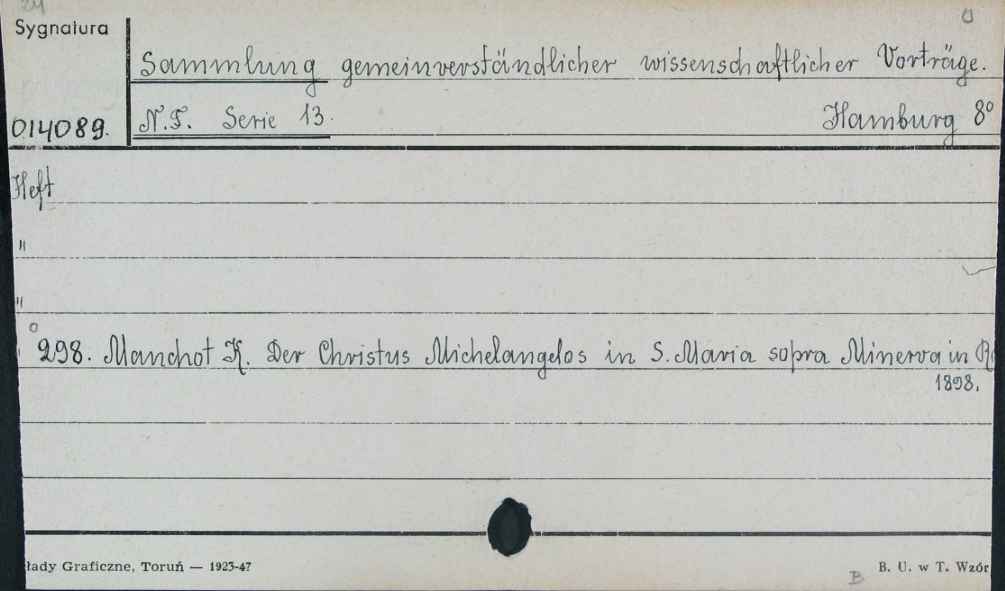 Sygnatura
Sammlung gemeinverständlicher wissenschaftlicher Vorträge.
014089.
N.F. Serie 13.
Hamburg 8°
Heft
"
"
298. Manchot K. Der Christus Michelangelos in S. Maria sopra Minerva in
1898.
łady Graficzne, Toruń — 1923-47
B. U. w T. Wzór
B